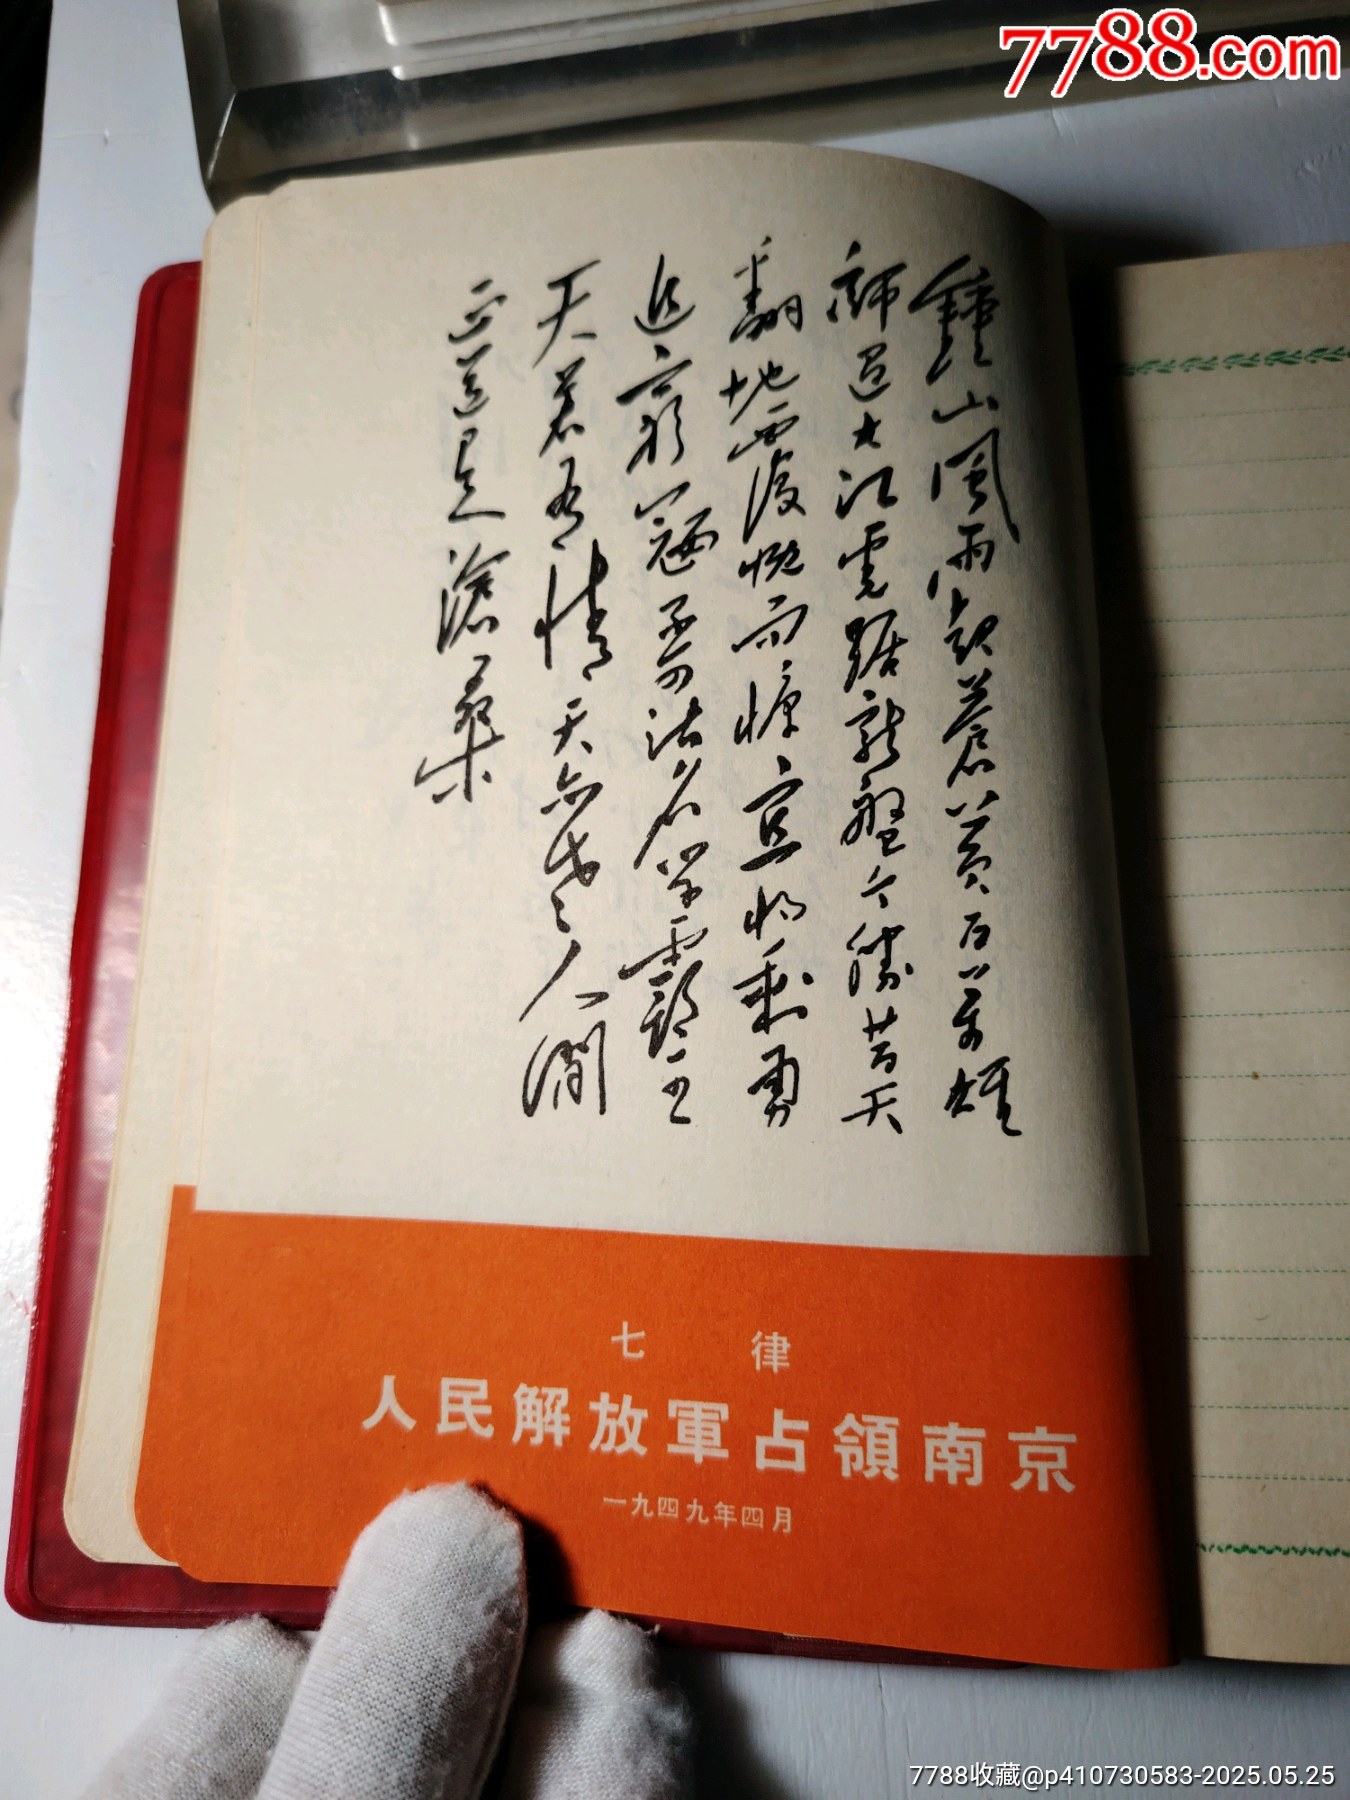 7788.com
鍾山風雨起蒼黃百萬雄
師過大江虎踞龍盤今勝昔天
翻地覆慨而慷宜將剩勇
追窮寇不可沽名學霸王
天若有情天亦老人間
正道是滄桑
七律
人民解放軍占領南京
一九四九年四月
7788收藏@p410730583-2025.05.25